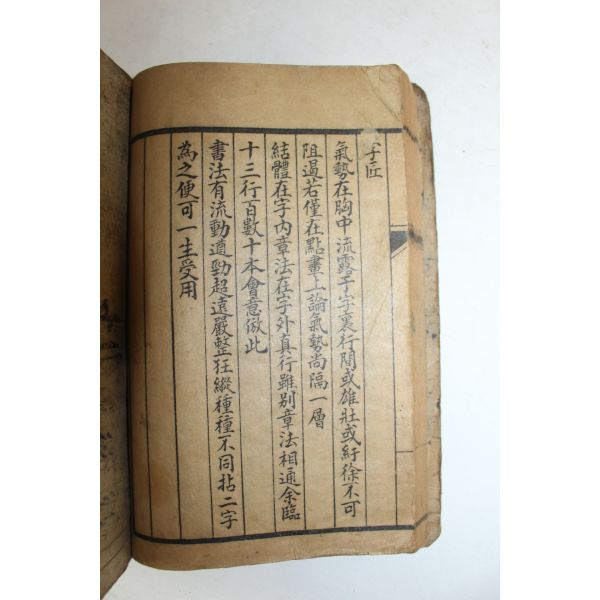 字匠
氣勢在胸中流露于字裏行間或雄壯或紆徐不可
阻遏若僅在點畫上論氣勢尚隔一層
結體在字內章法在字外真行雖别章法相通余臨
十三行百數十本會意倣此
書法有流動遒勁超遠嚴整狂縱種種不同拈二字
為之便可一生受用